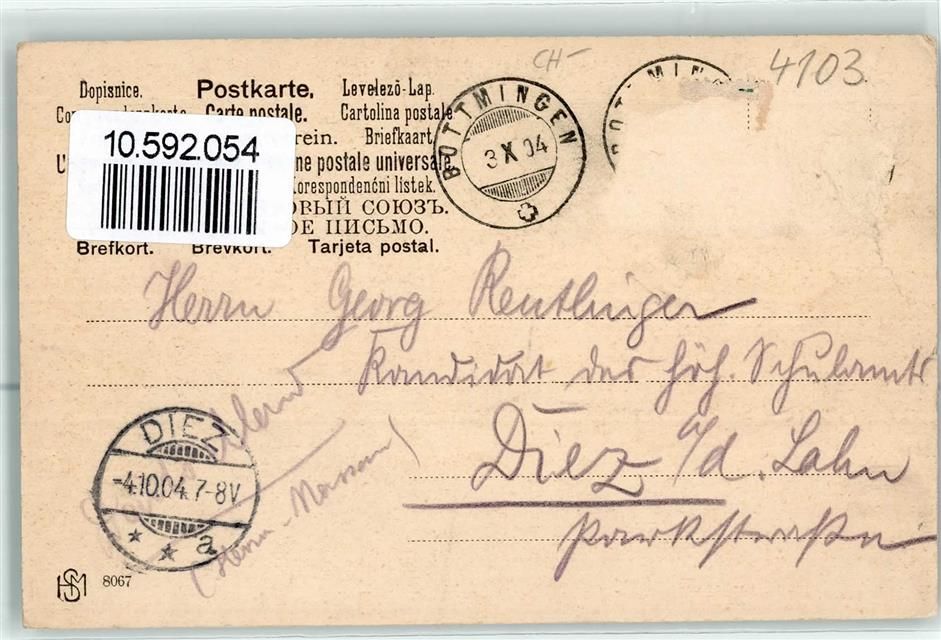 CH- 4103
Dopisnice. Postkarte. Levelező-Lap.
Carte postale. Cartolina postale
rein. Briefkaart.
ne postale universale
Korespondenčni listek.
ОВЫЙ СОЮЗЪ.
ОЕ ПИСЬМО.
Brefkort. Brevkort. Tarjeta postal.
10.592.054
BOTTMINGEN
3 X 04
Herrn Georg Reutlinger
Kandidat des höh. Schulamts
Diez a/d. Lahn
Parkstraße
Deutschland
(Hessen-Nassau)
DIEZ
-4.10.04.7-8V
* * a
HSM 8067